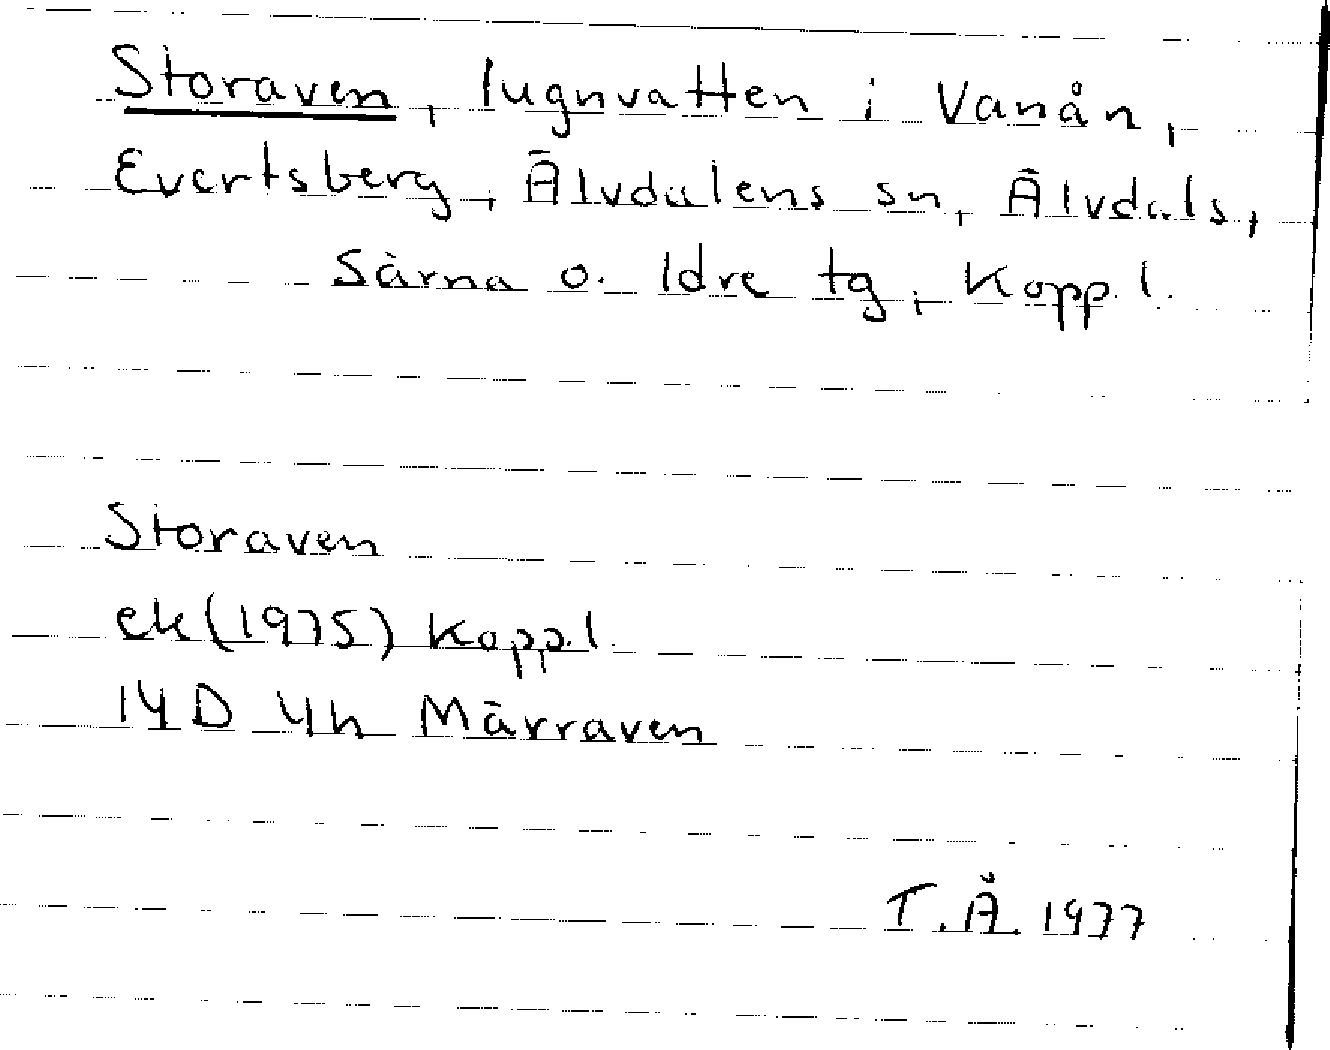 Storaven, lugnvatten i Vanån,
Evertsberg, Älvdalens sn, Älvdals,
Särna o. Idre tg, Kopp. l.
Storaven
ek (1975) Kopp. l.
14 D 4h Märraven
T. Å. 1977